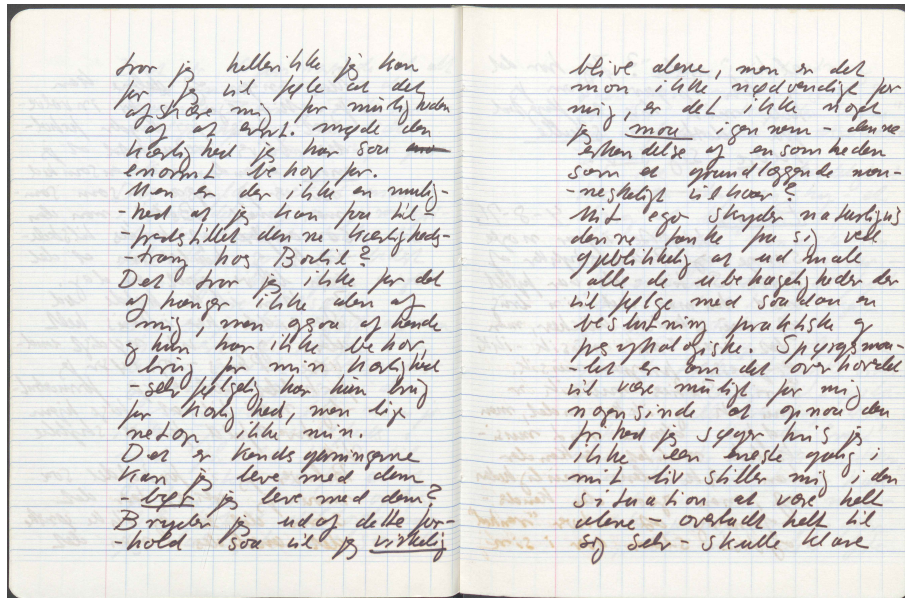 tror jeg hellerikke jeg kan
for jeg vil føle at det
afskære mig for muligheden
af at evnt. møde den
kærlighed jeg har saa
enormt behov for.
Men er der ikke en mulig-
-hed at jeg kan faa til-
-fredsstillet denne kærligheds-
-trang hos Bodil?
Det tror jeg ikke for det
afhænger ikke alen af
mig, men ogsaa af hende
og hun har ikke behov,
brug for min kærlighed
- selvfølgelig har hun brug
for kærlighed, men lige
netop ikke min.
Det er kendsgerningerne
kan jeg leve med dem
- bør jeg leve med dem?
Bryder jeg ud af dette for-
-hold saa vil jeg virkelig
blive alene, men er det
mon ikke nødvendigt for
mig, er det ikke noget
jeg maa igennem - denne
erkendelse af ensomheden
som et grundlæggende men-
-neskeligt vilkaar?
Mit ego skyder naturligvis
denne tanke fra sig ved
øjeblikkelig at udmale
alle de ubehageligheder der
vil følge med saadan en
beslutning praktiske og
psykologiske. Spørgsmaa-
-let er om det overhovedet
vil være muligt for mig
nogensinde at opnaa den
frihed jeg søger hvis jeg
ikke een eneste gang i
mit liv stiller mig i den
situation at være helt
alene - overladt helt til
sig selv - skulle klare